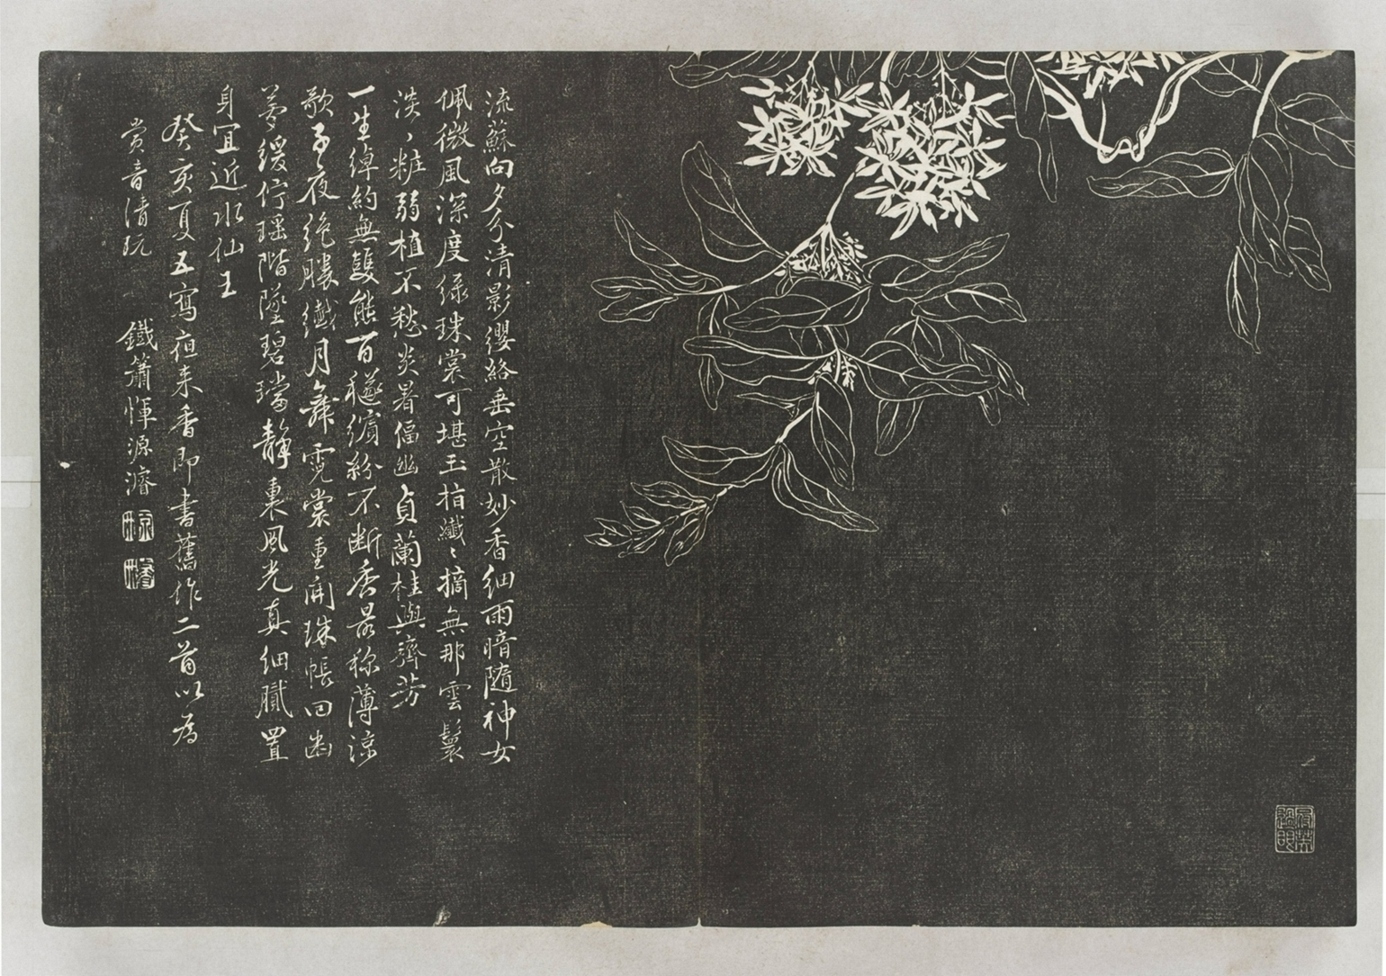 流蘇向夕分清影纓絡垂空散妙香細雨暗隨神女
佩微風深度綠珠裳可堪玉指纖〻摘無那雲鬟
淡〻粧弱植不愁炎暑偪幽貞蘭桂與齊芳
一生綽約無雙態百襚繽紛不斷香最稱薄涼
歌子夜絶勝纖月舞霓裳重開珠帳回幽
夢緩佇瑶階墜碧璫靜裏風光真細膩置
身宜近水仙王
癸亥夏五寫夜来香即書舊作二首以為
赏音清玩
鐵蕭惲源濬